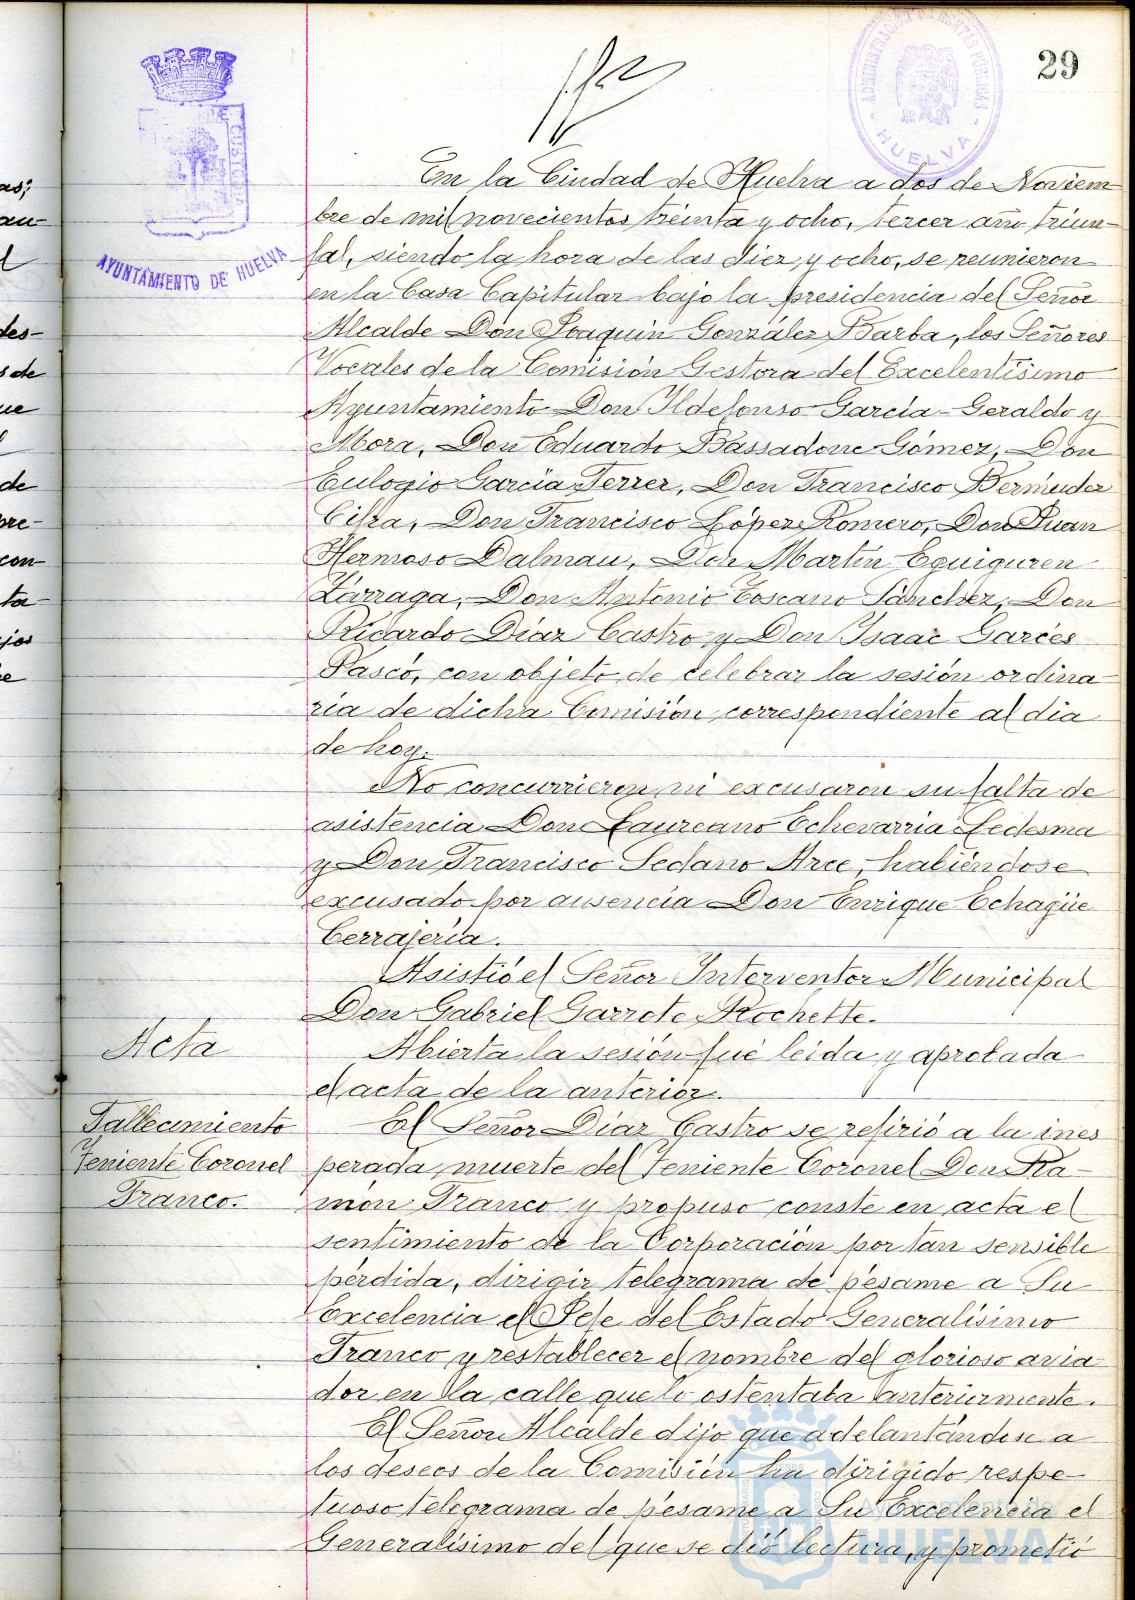 29
ADMINISTRACION DE RENTAS PÚBLICAS
HUELVA
AYUNTAMIENTO DE HUELVA
En la Ciudad de Huelva a dos de Noviem-
bre de mil novecientos treinta y ocho, tercer año triun-
fal, siendo la hora de las diez y ocho, se reunieron
en la Casa Capitular bajo la presidencia del Señor
Alcalde Don Joaquin González Barba, los Señores
Vocales de la Comisión Gestora del Excelentísimo
Ayuntamiento Don Ildefonso García-Geraldo y
Mora, Don Eduardo Bassadone Gómez, Don
Eulogio García Ferrer, Don Francisco Bermúdez
Cifra, Don Francisco López Romero, Don Juan
Hermoso Dalmau, Don Martín Eguiguren
Zárraga, Don Antonio Toscano Sánchez, Don
Ricardo Díaz Castro y Don Isaac Garcés
Pascó, con objeto de celebrar la sesión ordina-
ria de dicha Comisión correspondiente al dia
de hoy.
No concurrieron ni excusaron su falta de
asistencia Don Laureano Echevarria Ledesma
y Don Francisco Sedano Arce, habiéndose
excusado por ausencia Don Enrique Echagüe
Cerrajería.
Asistió el Señor Interventor Municipal
Don Gabriel Garrote Rochette.
Acta
Abierta la sesión fué leida y aprobada
el acta de la anterior.
Fallecimiento
Teniente Coronel
Franco.
El Señor Díaz Castro se refirió a la ines
perada muerte del Teniente Coronel Don Ra-
món Franco y propuso conste en acta el
sentimiento de la Corporación por tan sensible
pérdida, dirigir telegrama de pésame a Su
Excelencia el Jefe del Estado Generalísimo
Franco y restablecer el nombre del glorioso avia-
dor en la calle que lo ostentaba anteriormente.
El Señor Alcalde dijo que adelantándose a
los deseos de la Comisión ha dirigido respe-
tuoso telegrama de pésame a Su Excelencia el
Generalísimo del que se dió lectura, y prometió
Ayuntamiento de
HUELVA
as;
au-
des-
s de
ue
de
pre-
con-
ta-
ajos